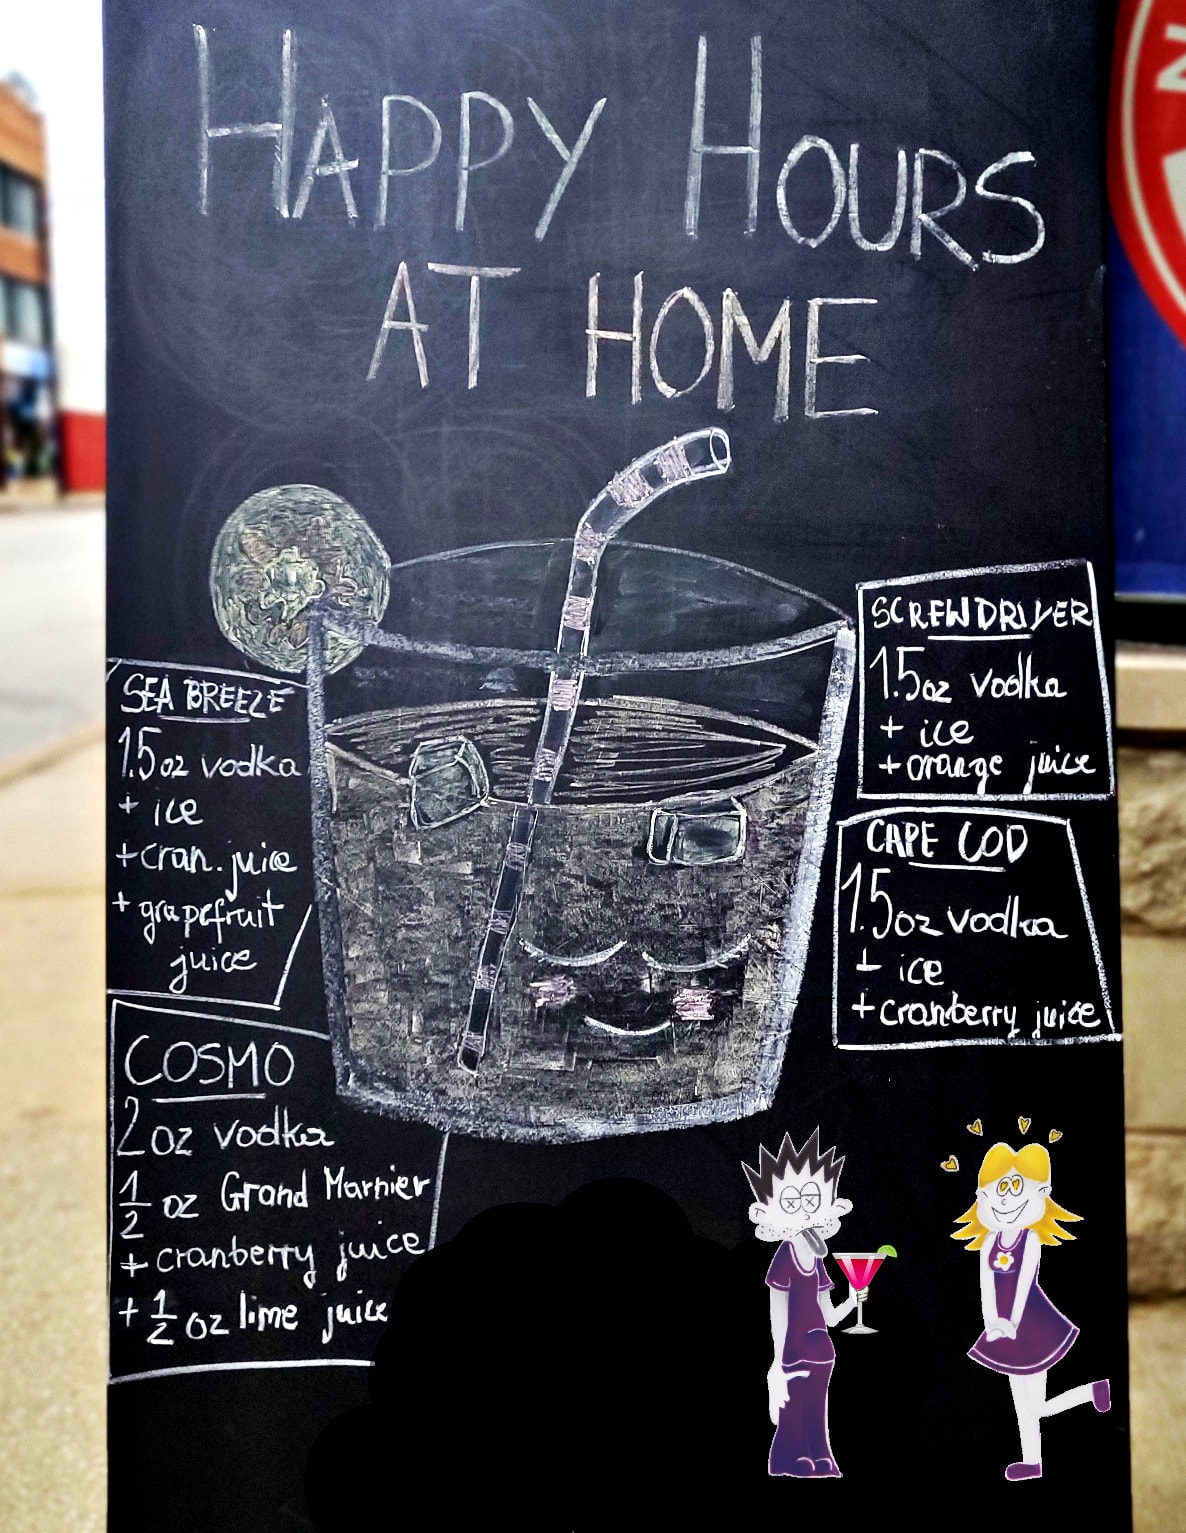 HAPPY HOURS
AT HOME
SEA BREEZE
1.5oz vodka
+ ice
+cran. juice
+ grapefruit
juice
COSMO
2oz vodka
1/2 oz Grand Marnier
+ cranberry juice
+ 1/2 oz lime juice
SCREWDRIVER
1.5oz vodka
+ ice
+orange juice
CAPE COD
1.5oz vodka
+ ice
+cranberry juice